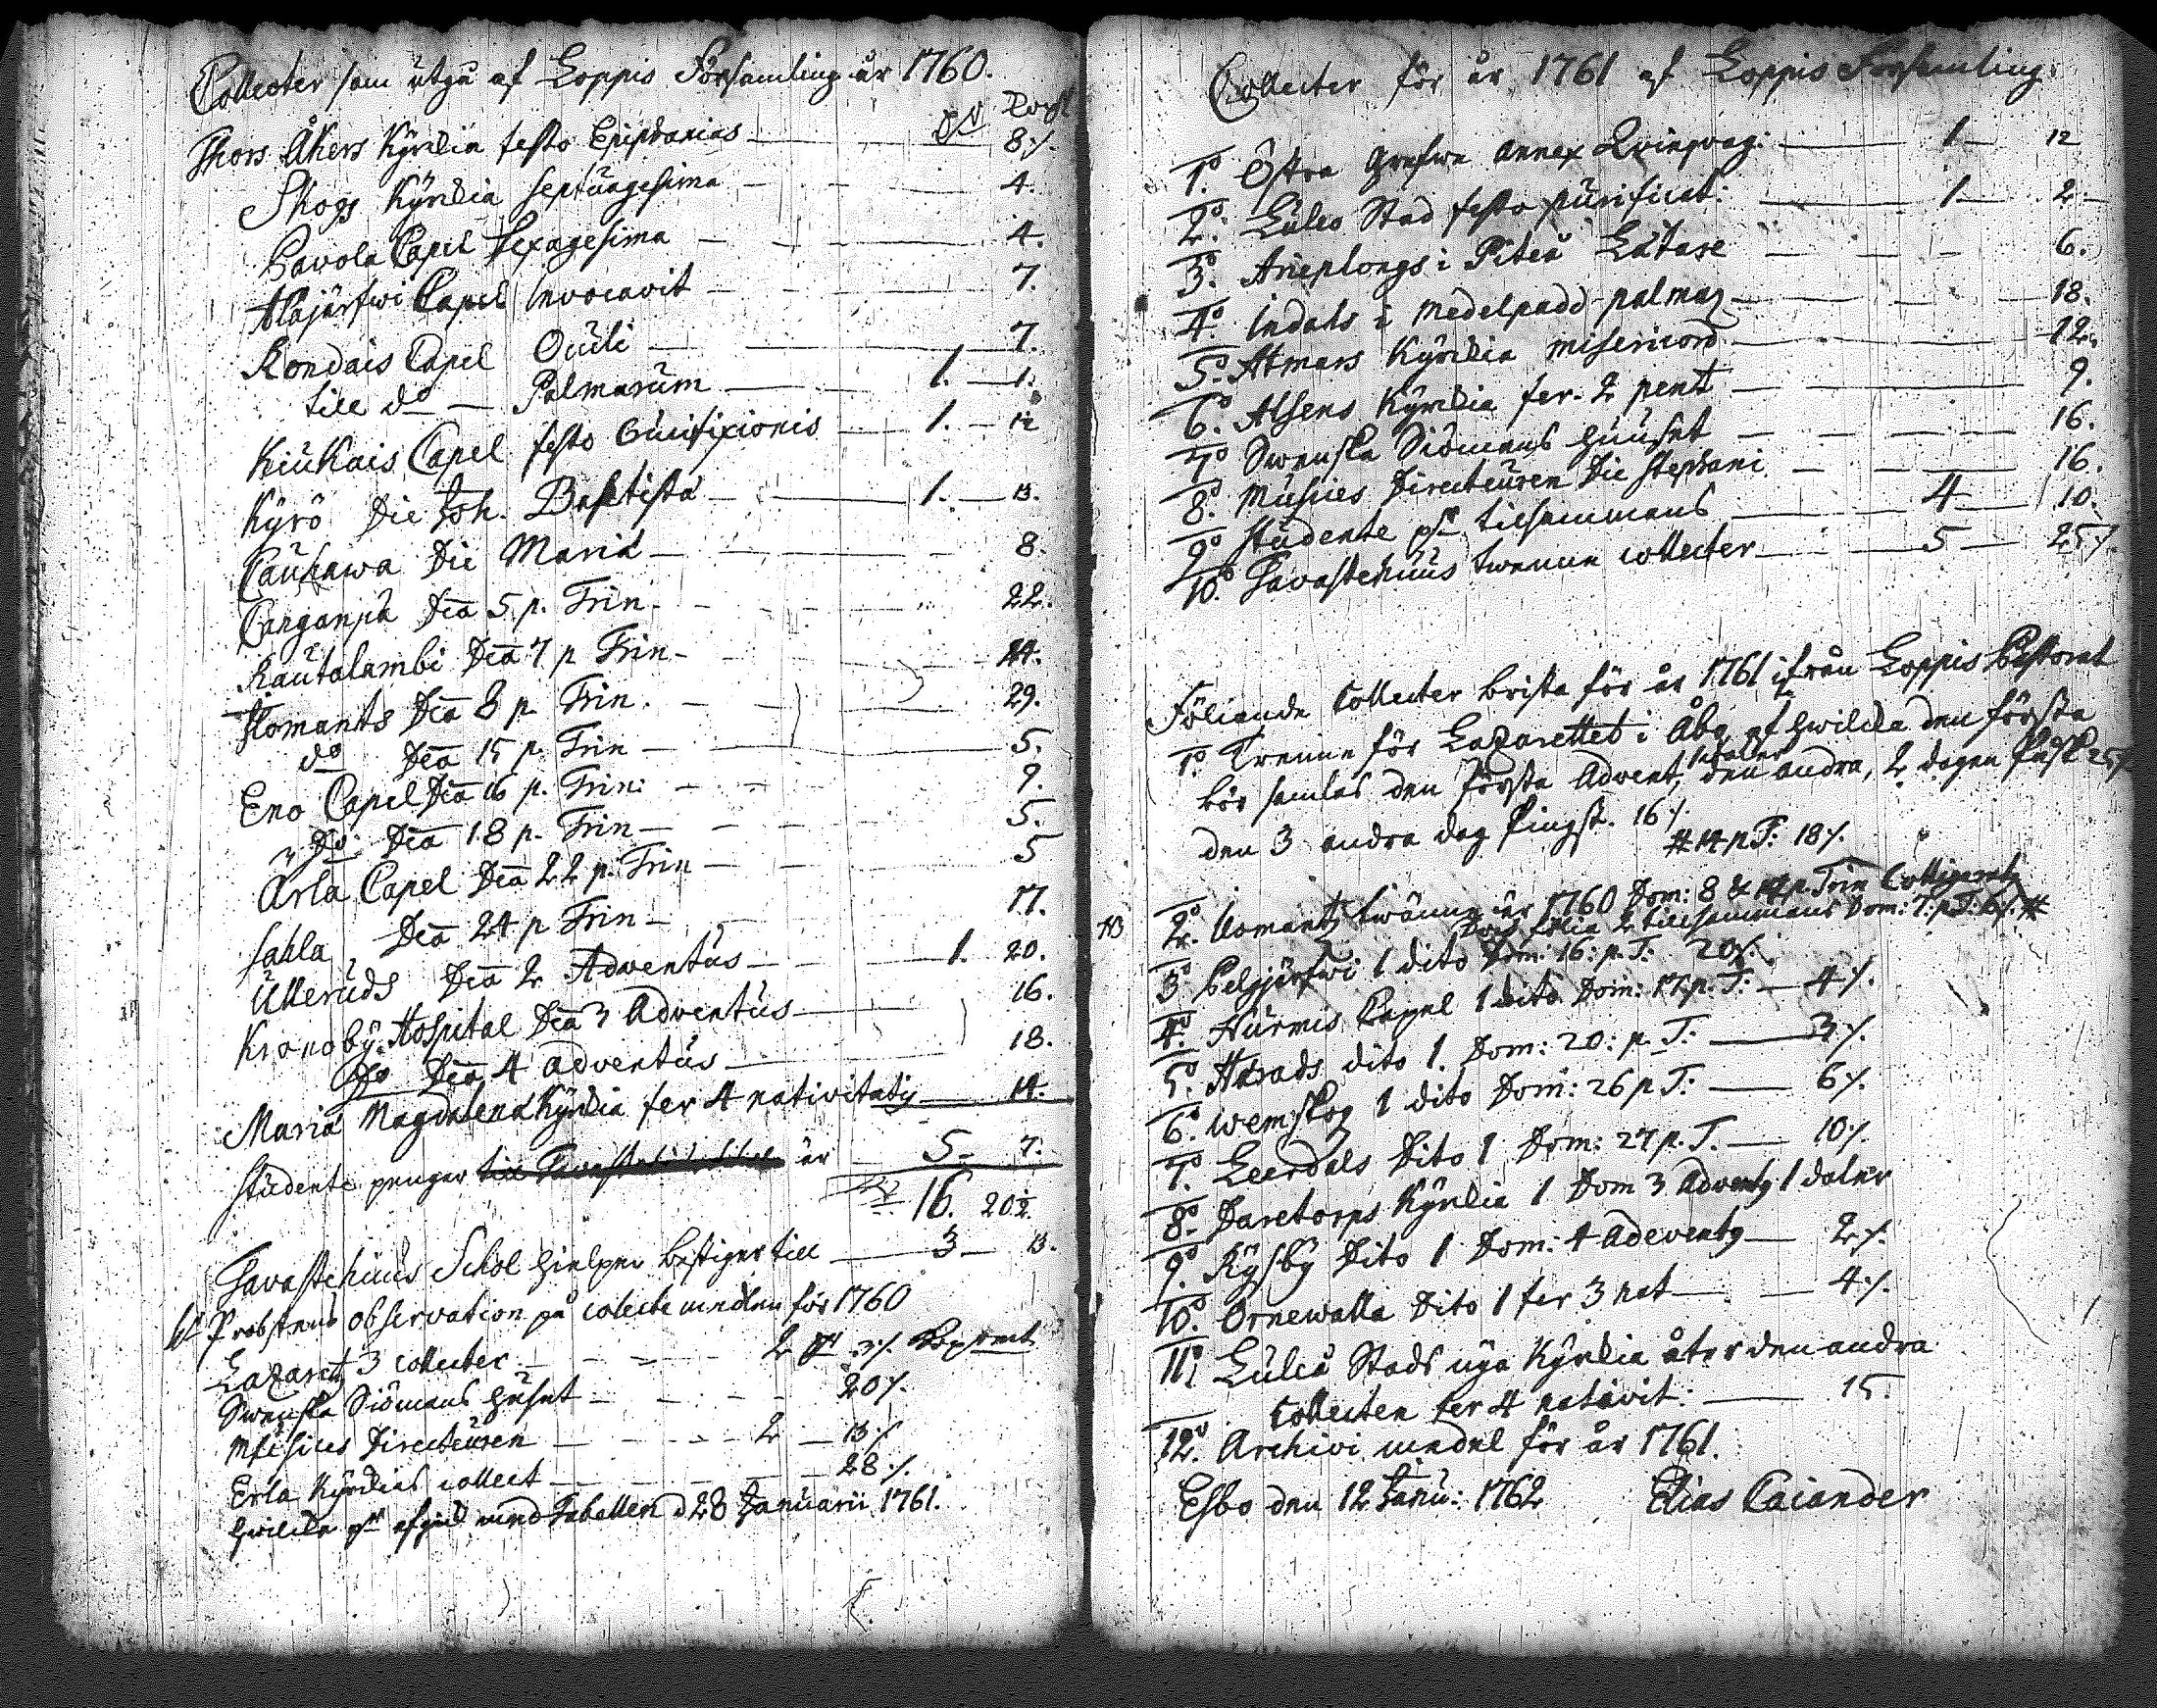 Collecter som utgå af Loppis Församling år 1760.
Thors Åkers Kyrckia festo Epiphanias — 8 ⁒.
Skogs Kyrckia Septuagesima — 4.
Pavola Capel Sexagesima — 4.
Alajärfwi Capel Invocavit — 7.
Kondais Capel Oculi — 7.
till do — Palmarum — 1. — 1.
Kiukais Capel festo — 1. — 12
Kyrö Die Joh. Baptistæ — 1. — 13.
Cauhawa Die Mariæ — 8.
Canganpä Dca 5 p. Trin. — 22.
Rautalambi Dca 7 p Trin — 24.
Ilomants Dca 8 p Trin. — 29.
do Dca 15 p. Trin — 5.
Eno Capel Dca 16 p. Trin: — 9.
Do Dca 18 p. Trin — 5.
Ärla Capel Dca 22 p. Trin — 5
Sahla Dca 24 p Trin — 17.
Ulleruds Dca 2 Adventus — 1. 20.
Kronoby Hospital Dca 3 Adventus — 16.
Do Dca 4 adventus — 18.
Mariæ Magdalenæ Kyrckia fer 4 nativitatis — 14.
studente penger är — 5 — 7.
16. 20 ½.
Tavastehuus Schol hielpen bestiger till — 3 — 13.
Probstens observation på collecte medlen för 1760
Lazaretz 3 collecter — 2 3 ⁒.
Swenska Siömans huset — 20 ⁒.
Musices Directeuren — 2 — 13 ⁒
Erla Kyrckias collect — 28 ⁒.
hwilcka med Tabellen d 28 Januarii 1761.
Collecter för år 1761 af Loppis Församling.
1o. Östra annex Qvinqvag: — 1 — 12
2o. Luleo Stad festo purificat: — 1 — 2 —
3o. Arieplongs i Piteå Lätare — 6.
4o. Indahls i Medelpadd palmar — 18.
5o. Atmars Kyrckia misericord — 12.
6o. Alsens Kyrckia fer. 2 pent — 9.
7o Swenska Siömans huuset — 16.
8o. Musices Directeuren Die Stephani — 16.
9o Studente tillsammans — 4 — 10.
10o. Tavastehuus twenne collecter — 5 — 25 ⁒.
Föliande Collecter brista för år 1761 ifrån Loppis Pastorat
1o. Trenne för Lazarettet i Åbo, af hwilcka den första
bör samlas den första Advent, den andra, 2 dagen Påsk 25 ⁒
den 3 andra dag Pingst. 16 ⁒.
# 14 p T: 18 ⁒.
NB 2o. Ilomantz twänne år 1760 Dom: 8 & 14 p. Trin
2 tillsammans Dom: 7: p T: #
3o Pelgjärfwi 1 dito Dom: 16: p. T: 20 ⁒.
4o. Nurmis Capel 1 dito Dom: 17 p. T: — 4 ⁒.
5o. Harads dito 1. Dom: 20: p. T: — 3 ⁒.
6o. Wemskog 1 dito Dom: 26 p T: — 6 ⁒.
7o. Leerdals Dito 1 Dom: 27 p. T. — 10 ⁒.
8o. Daretorps Kyrckia 1 Dom 3 Advents 1 daler
9o. Rysby Dito 1 Dom: 4 Advents — 2 ⁒.
10o. Ornewalla Dito 1 fer 3 nat — 4 ⁒.
11o. Luleå Stads nya Kyrckia åter den andra
Collecten fer 4 nativit: — 15.
12o. Archivi medel för år 1761.
Esbo den 12 Janu: 1762 Elias Caiander